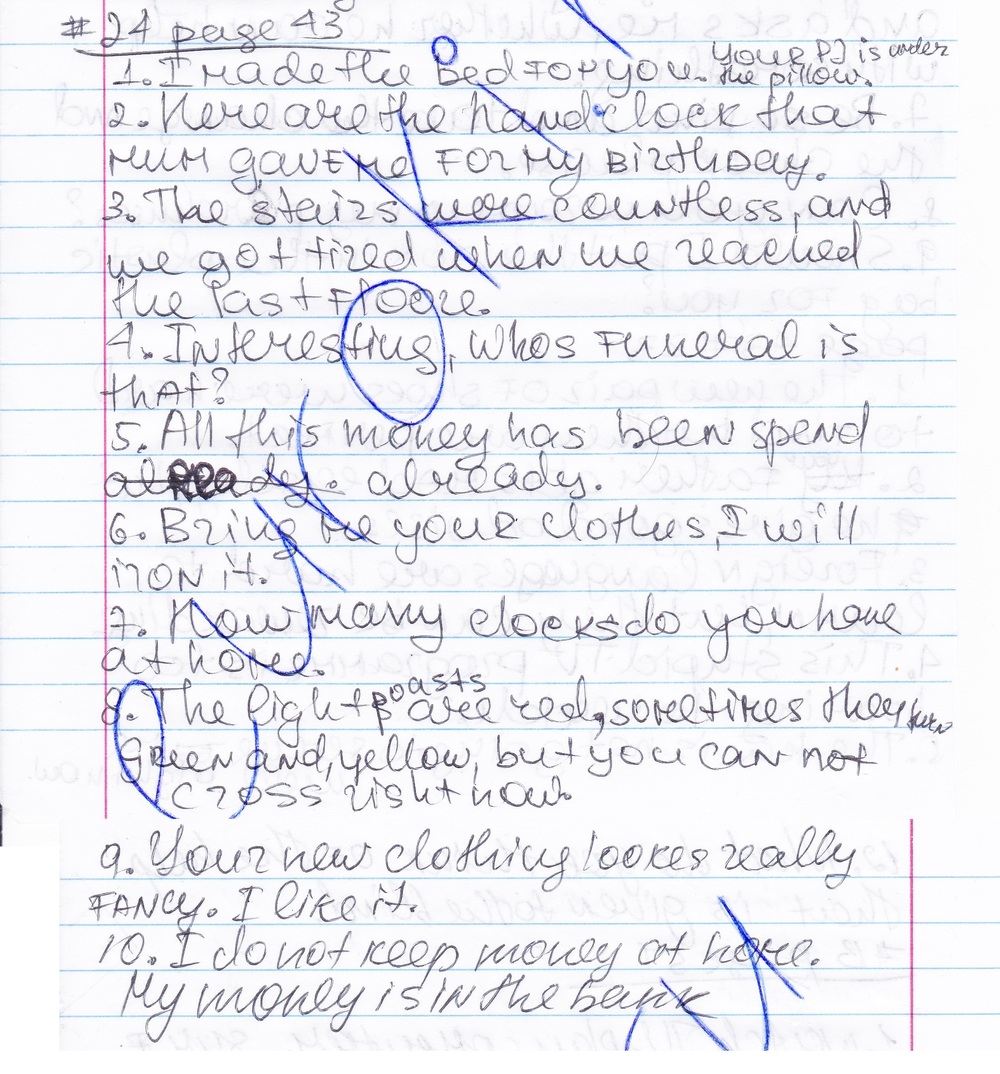 #24 page 43
1. I made the bed for you. Your PJ is under
the pillow.
2. Here are the hand clock that
mum gave me for my birthday.
3. The stairs were countless, and
we got tired when we reached
the last floore.
4. Interesting, whos funeral is
that?
5. All this money has been spend
already. already.
6. Bring me your clothes, I will
iron it.
7. How many clocks do you have
at home.
8. The light poasts are red, sometimes they turn
green and, yellow, but you can not
cross right now.
9. Your new clothing lookes really
fancy. I like it.
10. I do not keep money at home.
My money is in the bank